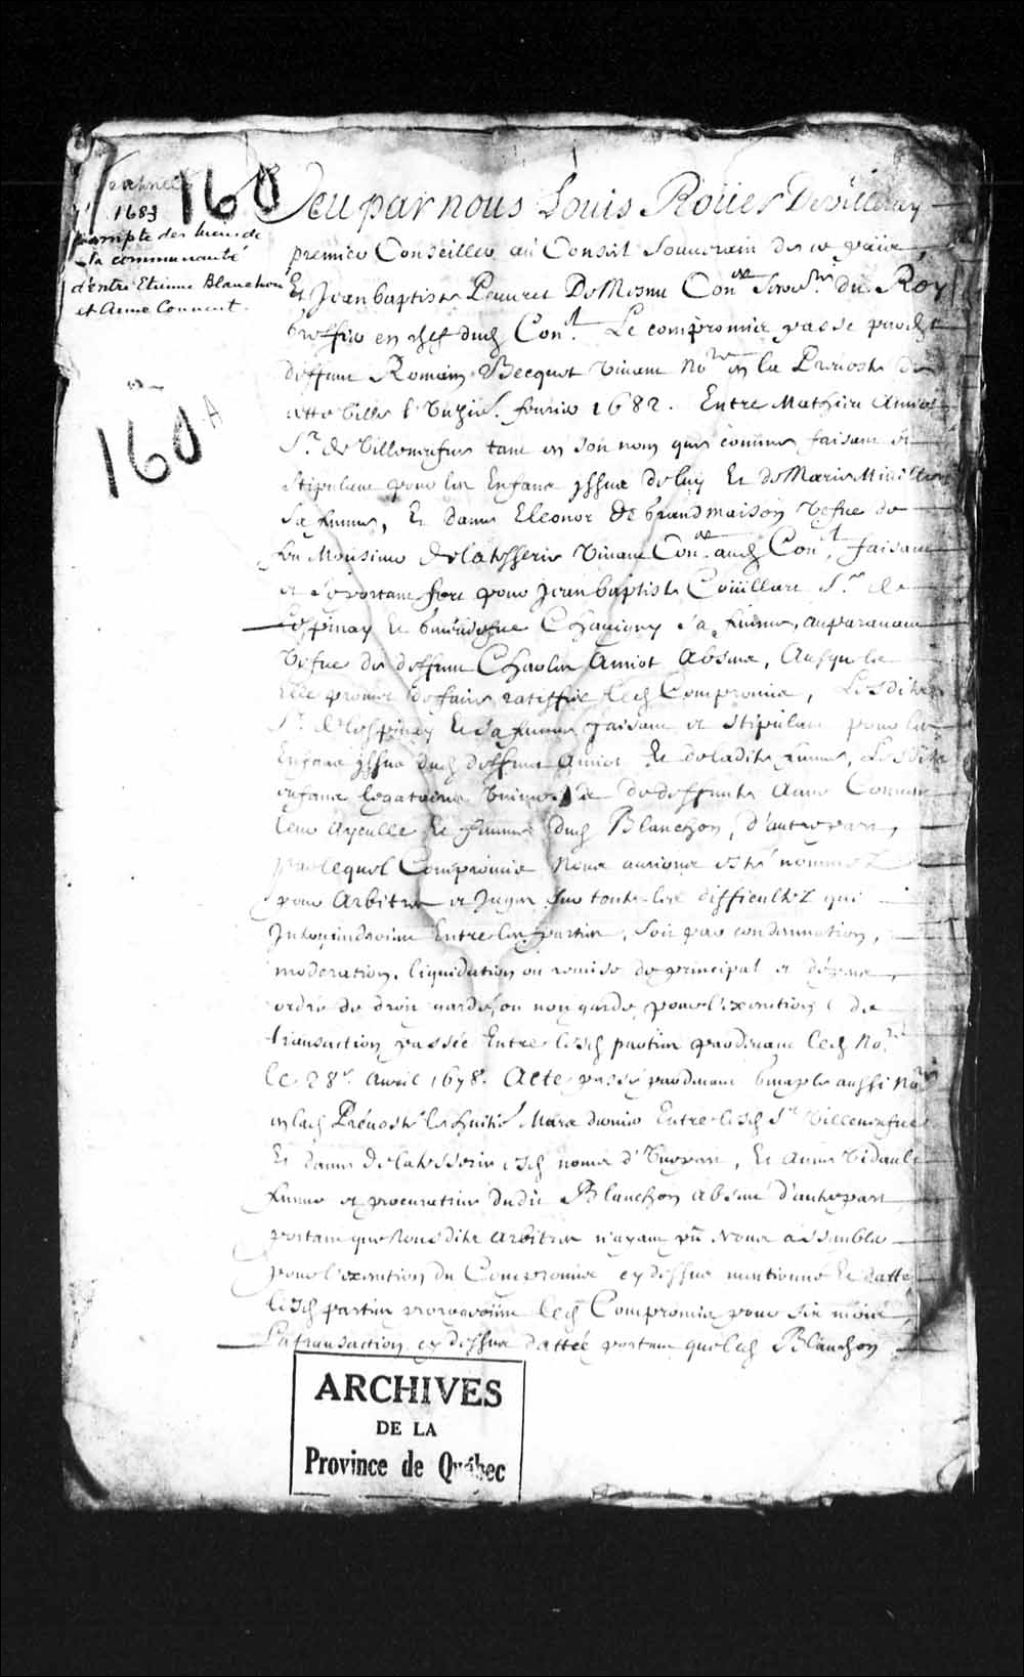 160
1683
compte des biens de
la communauté
d'entre Etienne Blanchon
et Anne Convent.
160 A
Veu par nous Louis Roüer De villeray
premier Conseiller au Conseil Souverain de ce païs
Et Jean baptiste Peuvret De Mesnu Con.er Secre.re du Roy
Greffier en chef dud Con.l Le compromis passé pardt
deffunt Romain Becquet vivant No.re en la Prevosté de
cette ville l'unzie. fevrier 1682. Entre Mathieu Amiot
S.r de Villeneufve tant en son nom que comme faisant et
stipulant pour les Enfans yssus de luy Et de Marie Miville
sa femme, Et dame Eleonor de Grandmaison Vefve de
feu Monsieur de la tesserie vivant Con.er aud Con.l, faisant
et se portant fort pour Jean baptiste Coüillart S.r de
Lespinay et Geneviefve Chavigny sa femme, auparavant
Vefve de deffunt Charles Amiot absens, Ausquels
Elle promet de faire ratiffier led Compromis, Lesdites
S.r de lespinay et sa femme faisant et stipulant pour les
Enfans yssus dud deffunt Amiot Et de ladite femme, Lesdits
enfans legataires de deffunte Anne Convent
leur Ayeulle Et femme dud Blanchon, d'autre part,
par lequel Compromis Nous aurions esté nommez
pour Arbitres et Juger sur toutes les difficultez qui
Interviendroient Entre les parties, soit par condamnation,
moderation, liquidation ou remise de principal et dépens,
ordre de droit gardé, ou non gardé, pour l'execution de
transaction passée Entre lesd parties pardevant led No.re
le 28e. Avril 1678. Acte passé pardevant Genaple aussi No.re
en lad Prévosté le huitie. Mars dernier Entre lesd S.r Villeneufve
Et dame de la tesserie esd noms d'Une part, Et Anne Vidault
femme et procuratrice dudit Blanchon absent d'autre part
portant que Nousdits arbitres n'ayant pû Nous assembler
pour l'execution du Compromis cy dessus mentionné Et datté
lesd parties prorogeoient led Compromis pour six mois
La transaction cy dessus dattée portant que led Blanchon
ARCHIVES
DE LA
Province de Québec